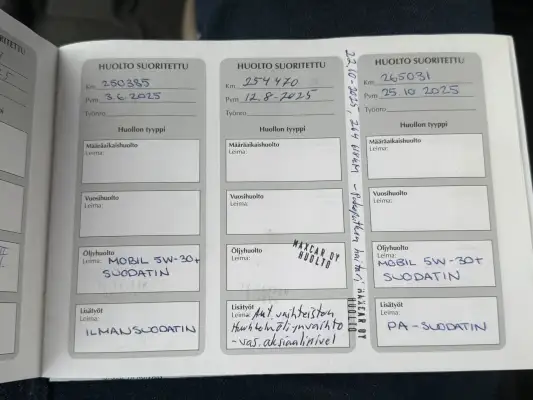 HUOLTO SUORITETTU
Km 250385
Pvm 3.6.2025
Työnro
Huollon tyyppi
Määräaikaishuolto
Leima:
Vuosihuolto
Leima:
Öljyhuolto
Leima: MOBIL 5W-30+
SUODATIN
Lisätyöt
Leima:
ILMANSUODATIN
HUOLTO SUORITETTU
Km 254470
Pvm 12.8-2025
Työnro
Huollon tyyppi
Määräaikaishuolto
Leima:
Vuosihuolto
Leima:
Öljyhuolto
Leima:
MAXCAR OY
HUOLTO
Lisätyöt
Leima: Aut. vaihteiston
Huuhteluöljynvaihto
-vas. aksiaalinivel
22.10-2025, 264
MAXCAR OY
HUOLTO
HUOLTO SUORITETTU
Km 265031
Pvm 25.10 2025
Työnro
Huollon tyyppi
Määräaikaishuolto
Leima:
Vuosihuolto
Leima:
Öljyhuolto
Leima:
MOBIL 5W-30+
SUODATIN
Lisätyöt
Leima:
PA-SUODATIN